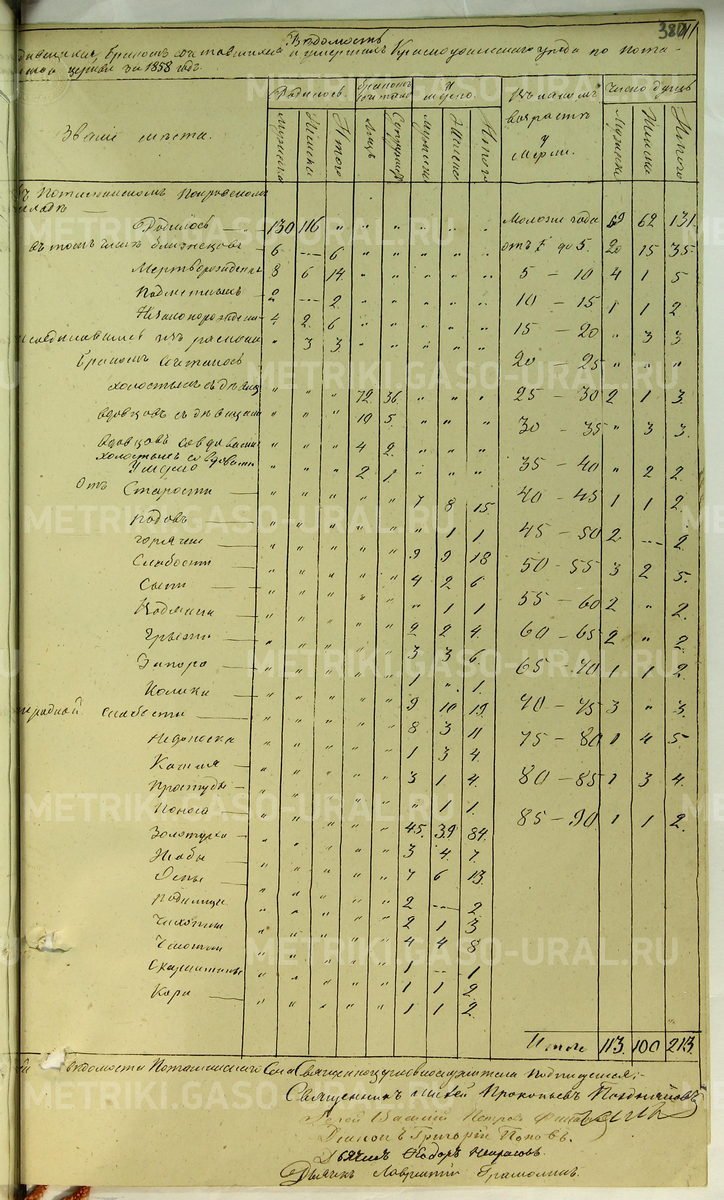 382 41
Ведомость
бракомъ сочетавшихся и умершихъ Красноуфимскаго уезда по Пота-
церкви за 1858 годъ.
Звание места.
Родилось.
Мужеска
Женска
Итого
Бракомъ сочетано
Лицъ
Супружес
Умерло.
Мужеска
Женска
Итого
Въ какомъ возрасте умерли.
Число душъ
Мужеска
Женска
Итого
Въ Поташинскомъ Покровскомъ
Родилось — 130 116 " " " " " " Моложе года 69 62 131
въ томъ числе близнецовъ 6 — 6 " " " " " отъ 1 до 5. 20 15 35
Мертворожденныхъ 8 6 14 " " " " " 5 – 10 4 1 5
2 — 2 " " " " " 10 – 15 1 1 2
Незаконорожден 4 2 6 " " " " " 15 – 20 " 3 3
изъ раскола " 3 3 " " " " " 20 – 25 " " "
Бракомъ сочеталось
холостыхъ съ девиц " " " 72 36 " " " 25 – 30 2 1 3
вдовцовъ съ девицами " " " 10 5 " " " 30 – 35 " 3 3
вдовцовъ со вдовами " " " 4 2 " " "
холостыхъ со вдовами " " " 2 1 " " " 35 – 40 " 2 2
Умерло
Отъ Старости — " " " " " 7 8 15 40 – 45 1 1 2
Родовъ — " " " " " " 1 1
Горячки — " " " " " 9 9 18 45 – 50 2 — 2
Слабости " " " " " 4 2 6 50 – 55 3 2 5
Сыпи " " " " " " 1 1 55 – 60 2 " 2
" " " " " 2 2 4 60 – 65 2 " 2
Грыжи " " " " " 3 3 6
Запора — " " " " " 1 " 1 65 – 70 1 1 2
Колики — " " " " " 9 10 19 70 – 75 3 " 3
слабости — " " " " " 8 3 11 75 – 80 1 4 5
Недоноска " " " " " 1 3 4
Кашля — " " " " " 3 1 4 80 – 85 1 3 4
Простуды — " " " " " " 1 1
Поноса — " " " " " 45 39 84 85 – 90 1 1 2
Золотухи — " " " " " 3 4 7
Жабы — " " " " " 7 6 13
Оспы — " " " " " 2 — 2
Родимца " " " " " 2 1 3
Чахотки " " " " " 4 4 8
" " " " " 1 — 1
Скарлатины " " " " " 1 1 2
Кори — " " " " " 1 1 2
Итого 113. 100 213.
Ведомости Поташинскаго Села Священноцерковнослужители подписуемся:
Священникъ Прокопьевъ
Василий Петровъ
Диаконъ Григорий Поповъ.
Дьячекъ Федоръ Некрасовъ.
Дьячекъ Лаврентий Грамолинъ.
METRIKI.GASO-URAL.RU